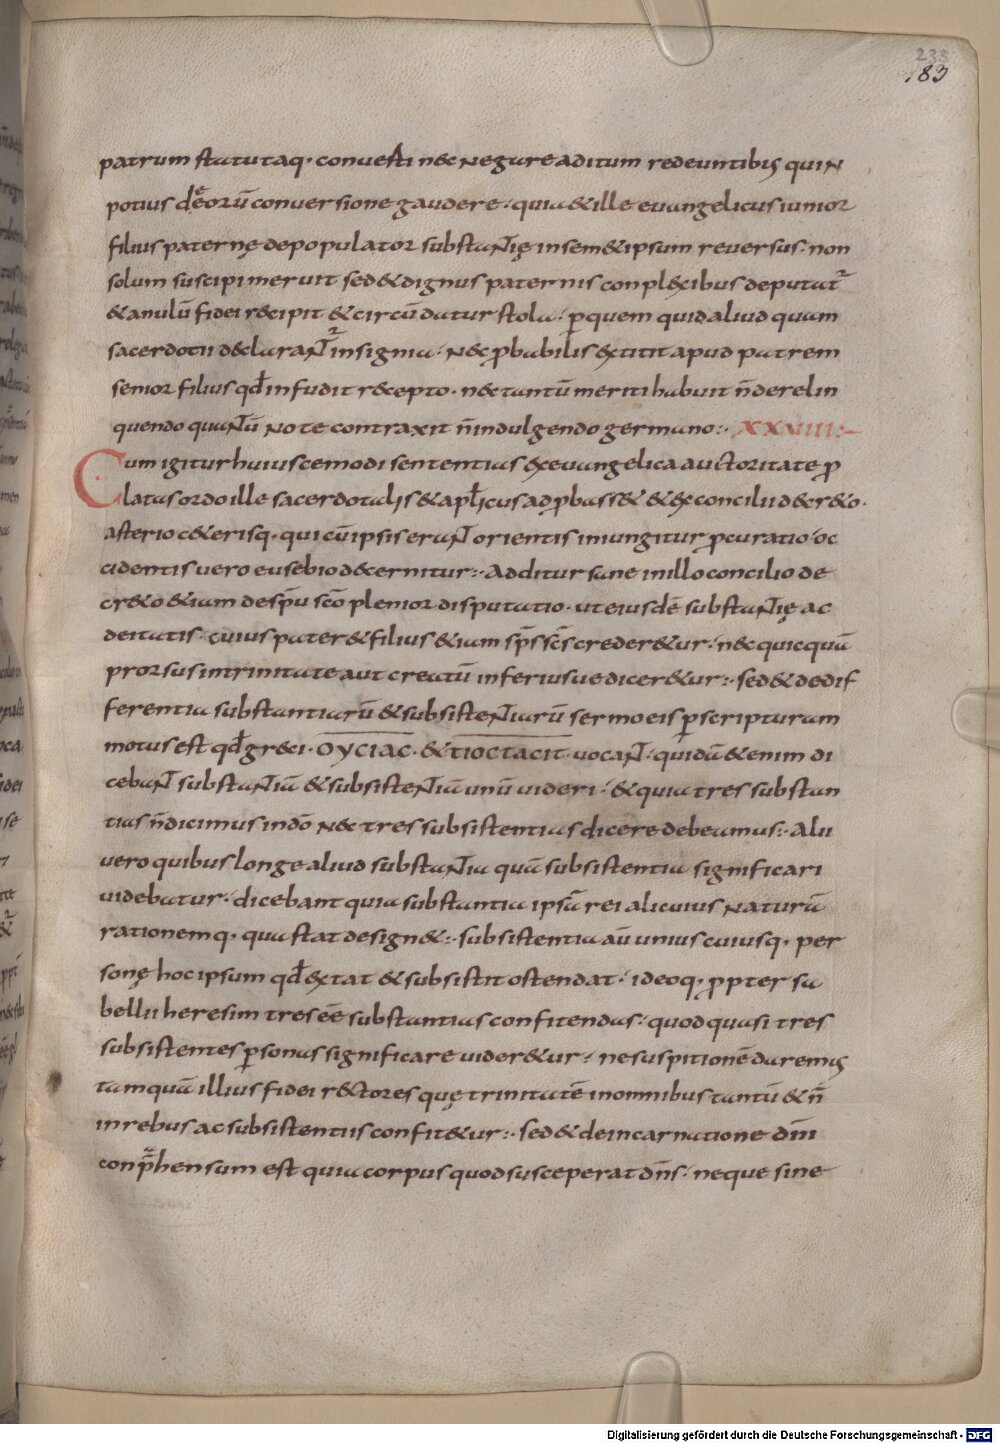 233
183
patrum statutaq· conuesti nec negare aditum redeuntibus quin
potius de eorū conuersione gaudere· quia & ille euangelicus iunior
filius paternę depopulator substantię in sem&ipsum reuersus· non
solum suscipi meruit sed & dignus paternis conplexibus deputat᷑
& anulū fidei recipit & circūdatur stola· ꝑ quem quid aliud quam
sacerdotii declarant᷑ insignia· nec ꝓbabilis extitit apud patrem
senior filius qđ infudit recepto· nec tantū meriti habuit n̄ derelin
quendo quantū note contraxit n̄ indulgendo germano:· XXXIIII:~
Cum igitur huiuscemodi sententias ex euangelica auctoritate ꝓ
latas ordo ille sacerdotalis & apłicus adꝓbass& & ex concilii decr&o·
asterio c&erisq· qui cū ipsis erant orientis iniungitur ꝓcuratio· oc
cidentis uero eusebio decernitur:· Additur sane in illo concilio de
cr&o &iam de sp̄u sc̄o plenior disputatio· ut eiusdē substantię ac
deitatis· cuius pater & filius &iam sp̄s sc̄s creder&ur· nec quicquā
prorsus in trinitate aut creatū inferiusue dicer&ur:· sed & de dif
ferentia substantiarū & subsistentiarū sermo eis ꝑ scripturam
motus est qđ greci· ΟΥCΙΑC· & ΤΙΟCΤΑCΙC· uocant· quidā &enim di
cebant substantiā & subsistentiā unū uideri· & quia tres substan
tias n̄ dicimus in dō nec tres subsistentias dicere debeamus:· Alii
uero quibus longe aliud substantia quā subsistentia significari
uidebatur· dicebant quia substantia ipsā rei alicuius naturā
rationemq· qua stat design&:· subsistentia aū unius cuiusq· per
sonę hoc ipsum qđ extat & subsistit ostendat· ideoq· ꝓpter sa
bellii heresim tres eē substantias confitendas· quod quasi tres
subsistentes ꝑsonas significare uider&ur· ne suspitionē daremus
tamquā illius fidei rectores quę trinitatē in omnibus tantū & n̄
in rebus ac subsistentiis confit&ur:· sed & de incarnatione dn̄i
conp̄hensum est quia corpus quod susceperat dn̄s· neque sine
Digitalisierung gefördert durch die Deutsche Forschungsgemeinschaft - DFG